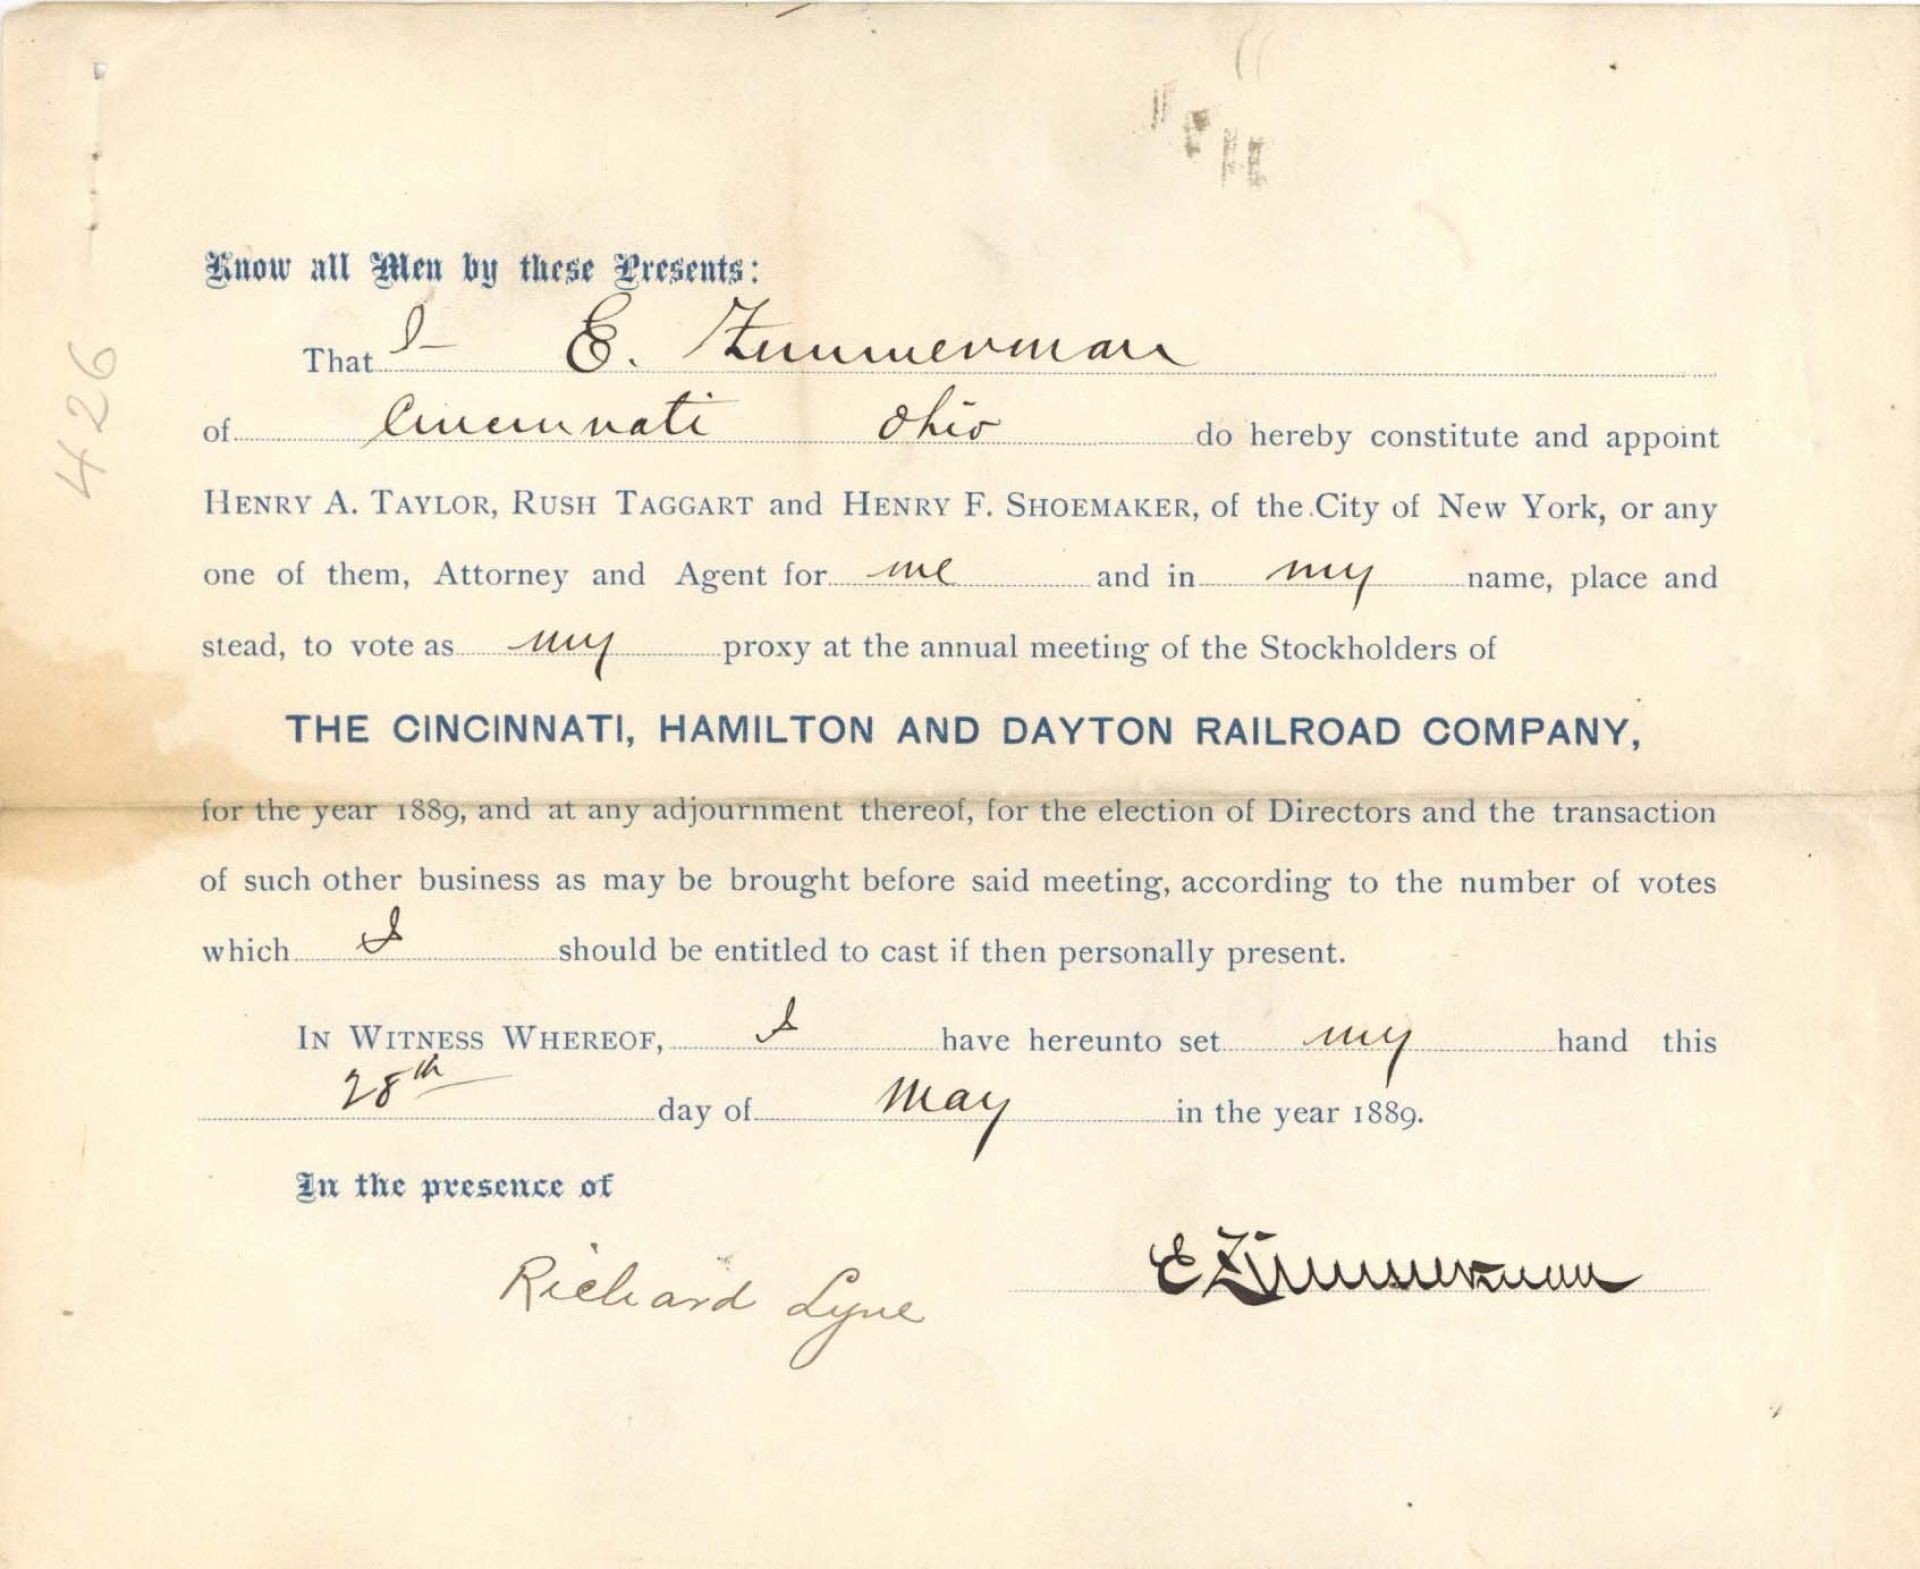 Know all Men by these Presents:
That I E. Zimmerman
of Cincinnati Ohio do hereby constitute and appoint
HENRY A. TAYLOR, RUSH TAGGART and HENRY F. SHOEMAKER, of the City of New York, or any
one of them, Attorney and Agent for me and in my name, place and
stead, to vote as my proxy at the annual meeting of the Stockholders of
THE CINCINNATI, HAMILTON AND DAYTON RAILROAD COMPANY,
for the year 1889, and at any adjournment thereof, for the election of Directors and the transaction
of such other business as may be brought before said meeting, according to the number of votes
which I should be entitled to cast if then personally present.
IN WITNESS WHEREOF, I have hereunto set my hand this
28th day of May in the year 1889.
In the presence of
Richard Lyne
E Zimmerman
426